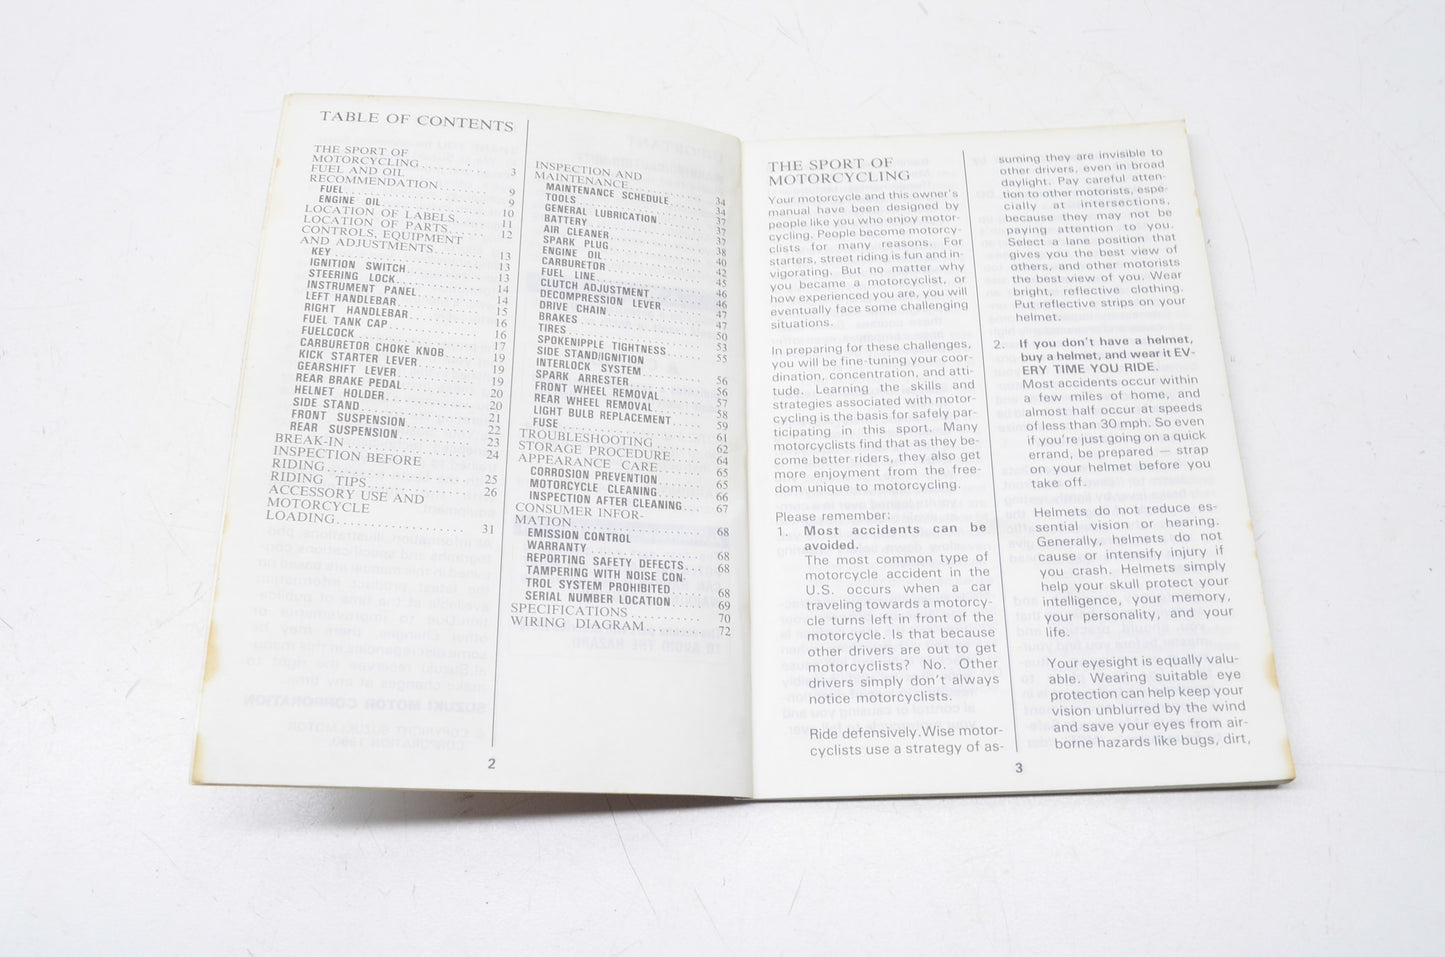 TABLE OF CONTENTS
THE SPORT OF
MOTORCYCLING 3
FUEL AND OIL
RECOMMENDATION 9
FUEL 9
ENGINE OIL 10
LOCATION OF LABELS 11
LOCATION OF PARTS 12
CONTROLS, EQUIPMENT
AND ADJUSTMENTS 13
KEY 13
IGNITION SWITCH 13
STEERING LOCK 14
INSTRUMENT PANEL 14
LEFT HANDLEBAR 15
RIGHT HANDLEBAR 16
FUEL TANK CAP 16
FUELCOCK 17
CARBURETOR CHOKE KNOB 19
KICK STARTER LEVER 19
GEARSHIFT LEVER 19
REAR BRAKE PEDAL 20
HELNET HOLDER 20
SIDE STAND 21
FRONT SUSPENSION 22
REAR SUSPENSION 23
BREAK-IN 24
INSPECTION BEFORE
RIDING 25
RIDING TIPS 26
ACCESSORY USE AND
MOTORCYCLE
LOADING 31
INSPECTION AND
MAINTENANCE 34
MAINTENANCE SCHEDULE 34
TOOLS 37
GENERAL LUBRICATION 37
BATTERY 37
AIR CLEANER 38
SPARK PLUG 40
ENGINE OIL 42
CARBURETOR 45
FUEL LINE 46
CLUTCH ADJUSTMENT 46
DECOMPRESSION LEVER 47
DRIVE CHAIN 47
BRAKES 50
TIRES 53
SPOKENIPPLE TIGHTNESS 55
SIDE STAND/IGNITION
INTERLOCK SYSTEM 56
SPARK ARRESTER 56
FRONT WHEEL REMOVAL 57
REAR WHEEL REMOVAL 58
LIGHT BULB REPLACEMENT 59
FUSE 61
TROUBLESHOOTING 62
STORAGE PROCEDURE 64
APPEARANCE CARE 65
CORROSION PREVENTION 65
MOTORCYCLE CLEANING 66
INSPECTION AFTER CLEANING 67
CONSUMER INFOR-
MATION 68
EMISSION CONTROL
WARRANTY 68
REPORTING SAFETY DEFECTS 68
TAMPERING WITH NOISE CON-
TROL SYSTEM PROHIBITED 68
SERIAL NUMBER LOCATION 69
SPECIFICATIONS 70
WIRING DIAGRAM 72
2
THE SPORT OF
MOTORCYCLING
Your motorcycle and this owner's
manual have been designed by
people like you who enjoy motor-
cycling. People become motorcy-
clists for many reasons. For
starters, street riding is fun and in-
vigorating. But no matter why
you became a motorcyclist, or
how experienced you are, you will
eventually face some challenging
situations.
In preparing for these challenges,
you will be fine-tuning your coor-
dination, concentration, and atti-
tude. Learning the skills and
strategies associated with motor-
cycling is the basis for safely par-
ticipating in this sport. Many
motorcyclists find that as they be-
come better riders, they also get
more enjoyment from the free-
dom unique to motorcycling.
Please remember:
1. Most accidents can be
avoided.
The most common type of
motorcycle accident in the
U.S. occurs when a car
traveling towards a motorcy-
cle turns left in front of the
motorcycle. Is that because
other drivers are out to get
motorcyclists? No. Other
drivers simply don't always
notice motorcyclists.
Ride defensively.Wise motor-
cyclists use a strategy of as-
suming they are invisible to
other drivers, even in broad
daylight. Pay careful atten-
tion to other motorists, espe-
cially at intersections,
because they may not be
paying attention to you.
Select a lane position that
gives you the best view of
others, and other motorists
the best view of you. Wear
bright, reflective clothing.
Put reflective strips on your
helmet.
2. If you don't have a helmet,
buy a helmet, and wear it EV-
ERY TIME YOU RIDE.
Most accidents occur within
a few miles of home, and
almost half occur at speeds
of less than 30 mph. So even
if you're just going on a quick
errand, be prepared — strap
on your helmet before you
take off.
Helmets do not reduce es-
sential vision or hearing.
Generally, helmets do not
cause or intensify injury if
you crash. Helmets simply
help your skull protect your
intelligence, your memory,
your personality, and your
life.
Your eyesight is equally valu-
able. Wearing suitable eye
protection can help keep your
vision unblurred by the wind
and save your eyes from air-
borne hazards like bugs, dirt,
3